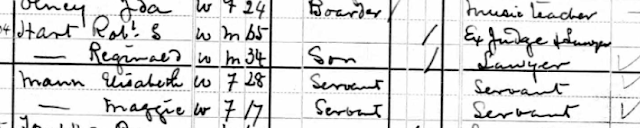 Olney Ida W F 24 Boarder / Music Teacher —
34 Hart Robt. S W M 65 / Ex Judge & Lawyer
— Reginald W M 34 Son / Lawyer ✓
Mann Elisabeth W F 28 Servant Servant ✓
— Maggie W F 17 Servant Servant ✓